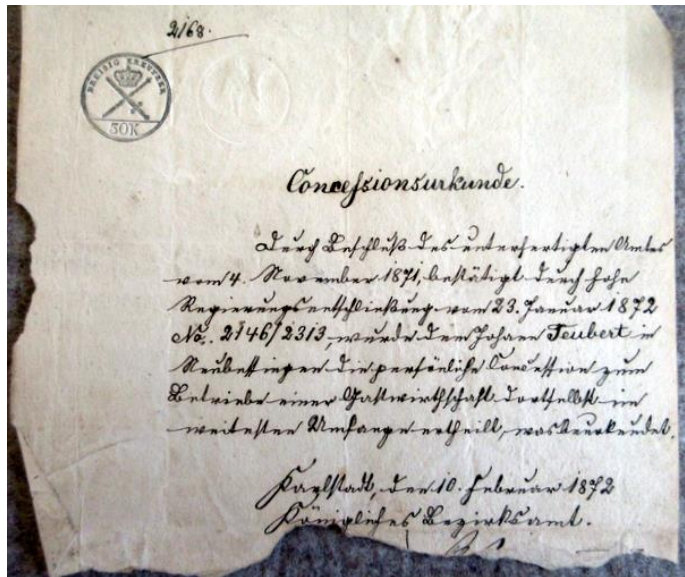 2168.
DREISIG KREUTZER
30K
Concessionsurkunde.
Durch Beschluß des unterfertigten Amtes
vom 4. November 1871, bestätigt durch hohe
Regierungsentschließung vom 23. Januar 1872
No. 2146/2313 wurde dem Johann Teubert in
Neubessingen die persönliche Concession zum
Betriebe einer Gastwirthschaft dortselbst im
weitesten Umfange ertheilt, was beurkundet.
Karlstadt, den 10. Februar 1872
Königliches Bezirksamt.